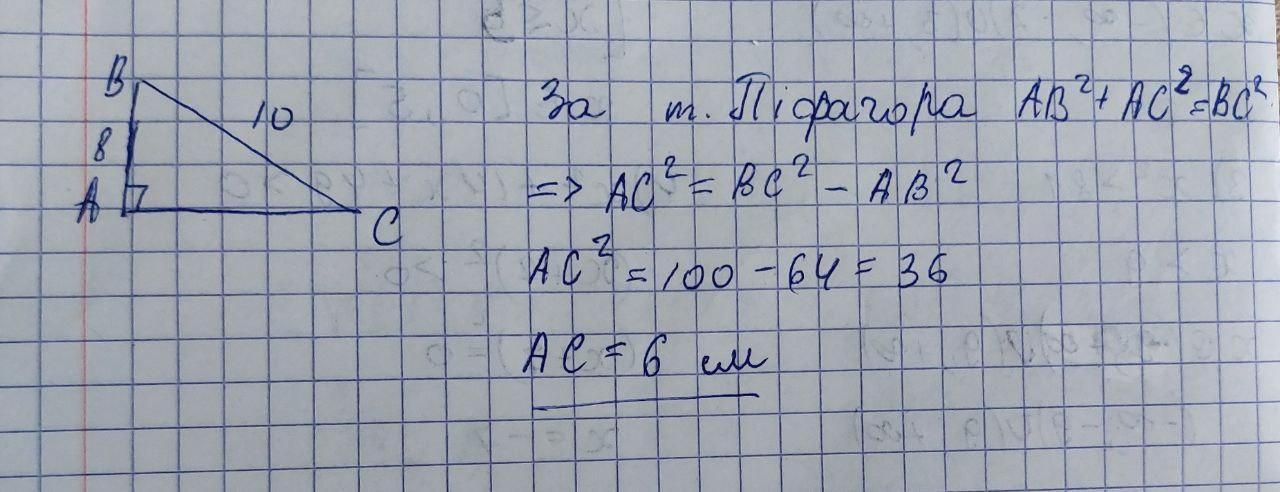 B
10
8
A
C
За т. Піфагора AB² + AC² = BC²
=> AC² = BC² - AB²
AC² = 100 - 64 = 36
AC = 6 см